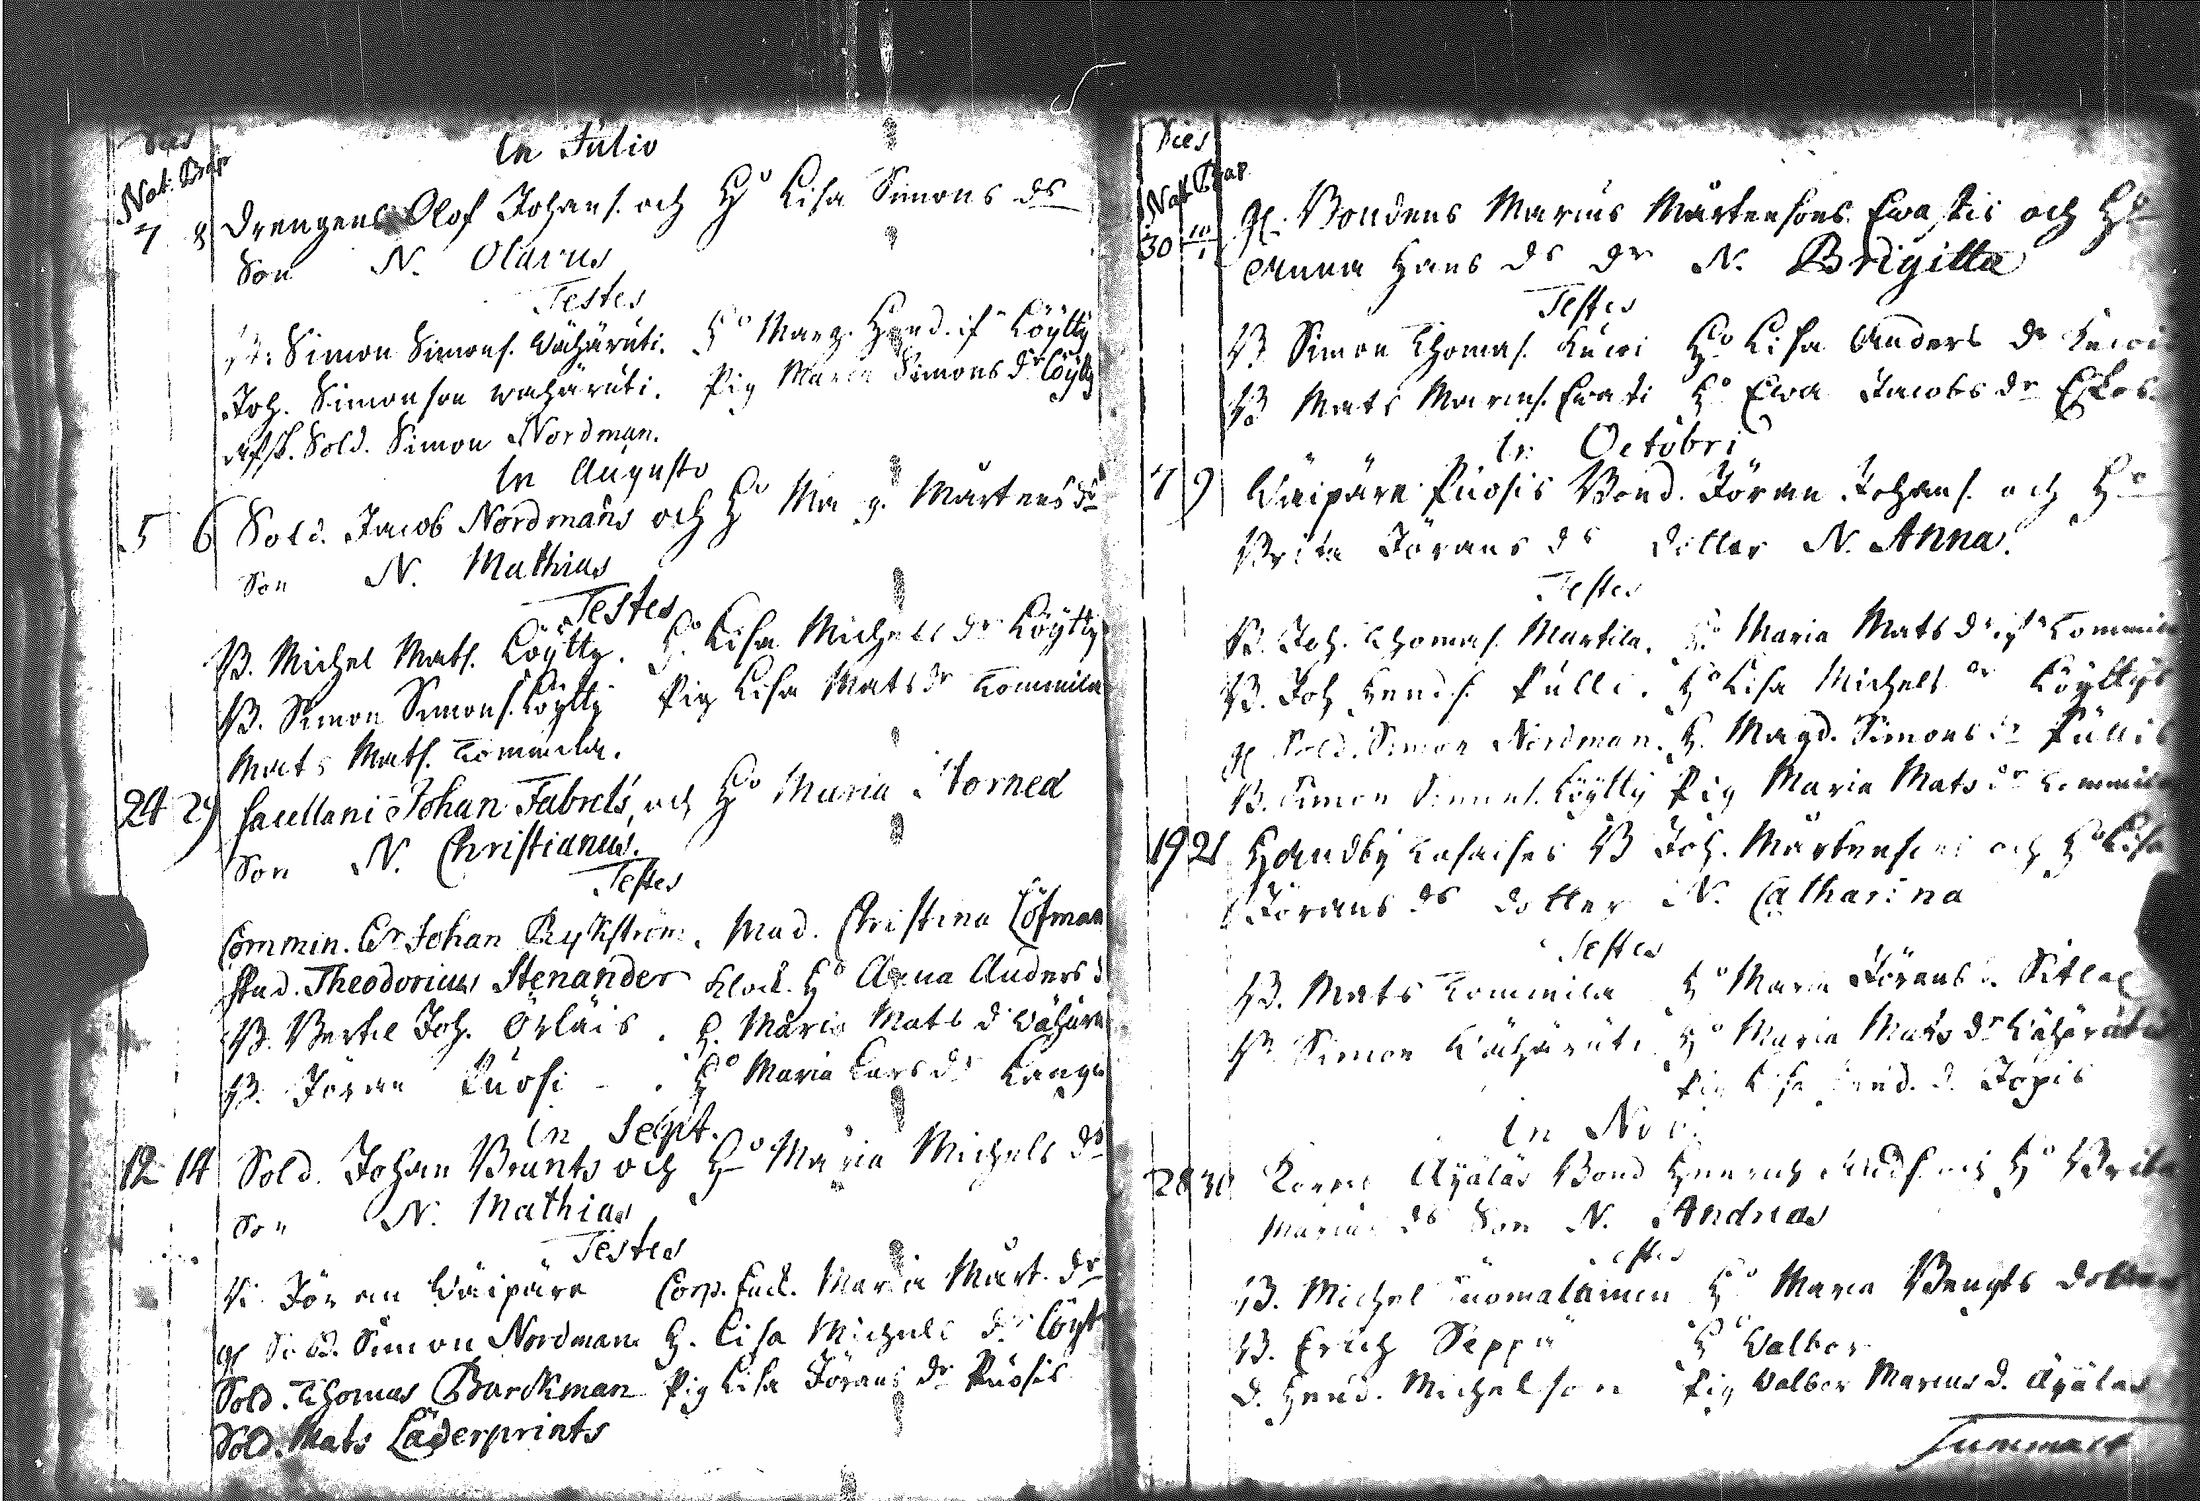 Dies
Nat. Bap
In Julio
7 8 Drengens Olof Johans. och Hu Lisa Simons dr
Son N. Olavus
Testes
B. Simon Simons. Wähäruti. Ho Marg. Hend. Löytty
Joh. Simonson wahäruti. Pig Maria Simons dr Löytty
afsk. Sold. Simon Nordman.
In Augusto
5 6 Sold. Jacob Nordmans och Hu Marg. Mårtens dr
Son N. Mathias
Testes
B. Michel Mats. Löytty. Ho Lisa Michels dr Löytty
B. Simon Simons. Löytty Pig Lisa Mats dr Tommila
Mats Mats. Tommila.
24 29 Sacellani Johan Fabrets, och Ho Maria Horned
Son N. Christianus.
Testes
Commin. Er Johan Mad. Christina Löfman
Stud. Theodoricus Stenander Klock. Ho Anna Anders
B. Bertil Joh. Örläis. H. Maria Mats d Wähäru
B. Jöran Puosi Ho Maria Lars dr
In Sept.
12 14 Sold. Johan Brunts och Ho Maria Michels dr
Son N. Mathias
Testes
Jöran Wäipäre Corp. Enck. Maria Mårt. dr
gl Sold. Simon Nordman H. Lisa Michels dr Löyt
Sold. Thomas Barckman Pig Lisa Jörans dr Puosis
Sold. Mats Läderprints
Dies
Nat Bap
30 10/1 gl. Bondens Marcus Mårtensons och Ho
Anna Hans ds dr N. Brigitta
Testes
B Simon Thomas. Ho Lisa Anders dr
B Mats Marcus. Ho Ewa Jacobs dr
In Octobri
7 9 Wäipäre Puosis Bond. Jöran Johans. och Ho
Brita Jörans ds dotter N. Anna.
Testes
B. Joh. Thomas. Martila. Ho Maria Mats dr Tommila
B. Joh Hends. Pulli. Ho Lisa Michels dr Löyttys
gl Sold. Simon Nordman. H. Magd. Simons dr Pullis
B. Simon Simons. Löytty Pig Maria Mats dr Tommila
19 21 B Joh. Mårtensons och Ho Lisa
Jörans ds dotter N. Catharina
Testes
B. Mats Tommila Ho Maria Jörans
B. Simon Wähäruti Ho Maria Mats dr Wähäruti
Pig Lisa Hend. d. Jopis
In Nov.
28 30 Äyäläs Bond Henrich och Ho Brita
Marcus ds Son N. Andreas
Testes
B. Michel Ho Maria Bengts dotter
B. Erich Seppä Ho Walbor
D. Hend. Michelson Pig Walbor Marcus d. Äyäläs